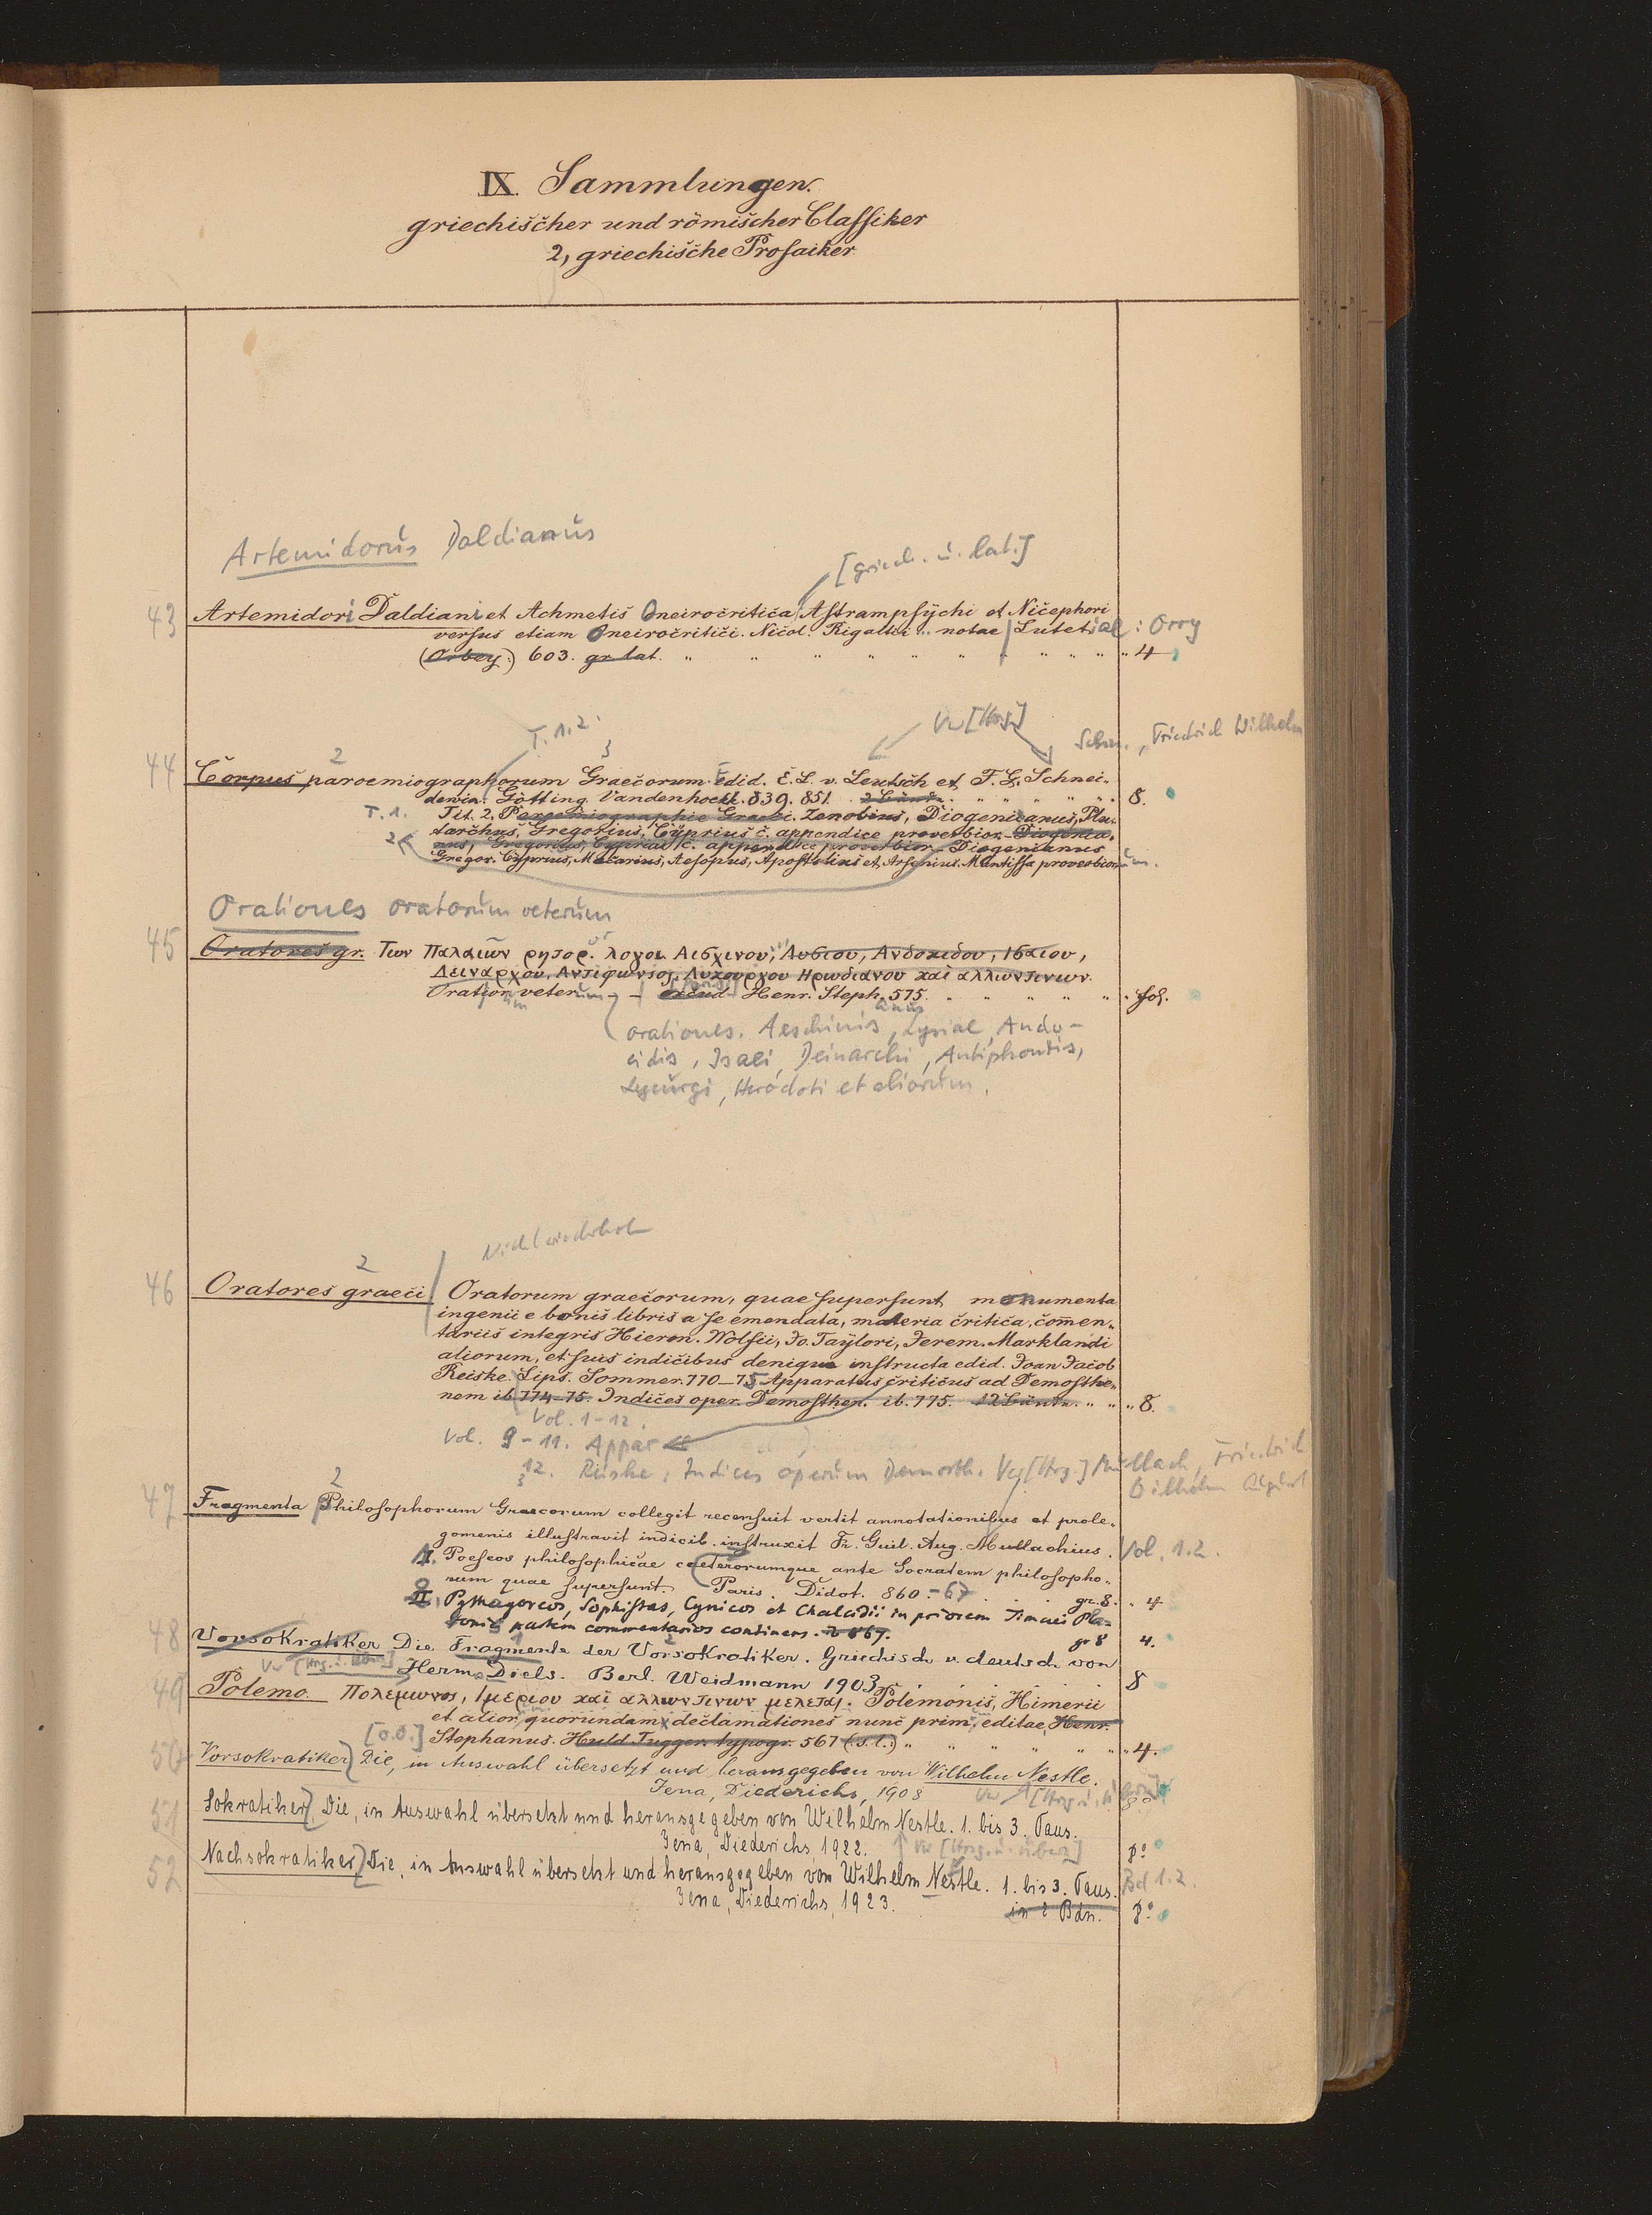 IX. Sammlungen.
griechischer und römischer Classiker
2, griechische Prosaiker
Artemidorus Daldianus
[griech. u. lat.]
43 Artemidori Daldiani et Achmetis Oneirocritica Astrampsychi et Nicephori
versus etiam Oneirocritici. Nicol. Rigaltii .. notae Lutetiae : Orry
(Orbey.) 603. gr. lat. " " " " " " " " " " " 4
T. 1.2.
3
Vw [Hrsg]
Schn. , Friedrich Wilhelm
2
44 Corpus paroemiographorum Graecorum Edid. E. L. v. Leutsch et F. G. Schnei-
dewin. Götting. Vandenhoeck. 839. 851. 2 Bände. " " " " " " 8.
T. 1. Tit. 2, Paroemiographie Graeci. Zenobius, Diogenianus, Plu-
tarchus, Gregorius, Cyprius c. appendice proverbior. Diogenia-
2 nus, Gregorius, Cyprius c. appendice proverbior. Diogenianus
Gregor. Cyprius, Macarius, Aesopus, Apostolius et Arsenius. Mantissa proverbiorum.
Orationes oratorum veterum
45 Oratores gr. Των Παλαιων ρητορ. λογοι Αισχινου, Λυσιου, Ανδοκιδου, Ισαιου,
Δειναρχου, Αντιφωντος, Λυκουργου Ηρωδιανου και αλλων τινων.
Oratior. veterum excud. Henr. Steph. 575. " " " " " " fol.
orationes. Aeschinis, Lysiae, Ando-
cidis, Isaei, Deinarchi, Antiphontis,
Lycurgi, Herodoti et aliorum.
Nicht wiederholt
2
46 Oratores graeci Oratorum graecorum, quae supersunt monumenta
ingenii e bonis libris a se emendata, materia critica, comen-
tariis integris Hieron. Wolfii, Jo. Taylori, Jerem. Marklandi
aliorum, et suis indicibus denique instructa edid. Joan Jacob
Reiske. Lips. Sommer. 770–75 Apparatus criticus ad Demosthe-
nem ib. 774–75. Indices oper. Demosthen. ib. 775. 12 Bände. " " " 8.
Vol. 1-12.
Vol. 9-11. Appar
12. Reiske, Indices operum Demosth. Vw [Hrsg.] Mullach, Friedrich
Wilhelm August
2
47 Fragmenta Philosophorum Graecorum collegit recensuit vertit annotationibus et prole-
gomenis illustravit indicib. instruxit Fr. Guil. Aug. Mullachius. Vol. 1.2.
I. Poeseos philosophicae caeterorumque ante Socratem philosopho-
rum quae supersunt. Paris. Didot. 860.-67 gr. 8. " 4
II. Pythagoreos, Sophistas, Cynicos et Chalcidii in priorem Timaei Pla-
tonis partem commentarios continens. 867. gr 8 4.
48 Vorsokratiker Die Fragmente der Vorsokratiker. Griechisch u. deutsch von
Vw [Hrsg. u. Übers.] Herm. Diels. Berl. Weidmann 1903. 8
49 Polemo. Πολεμωνος, Ιμεριου και αλλων τινων μελεται. Polemonis, Himerii
et alior. quorundam declamationes nunc prim. editae. Henr.
[o.O.] Stephanus. Huld. Fugger. typogr. 567 (s.l.) " " " " " " 4.
50 Vorsokratiker, Die, in Auswahl übersetzt und herausgegeben von Wilhelm Nestle.
Jena, Diederichs, 1908 8°
51 Sokratiker, Die, in Auswahl übersetzt und herausgegeben von Wilhelm Nestle. 1. bis 3. Taus.
Jena, Diederichs, 1922. Vw [Hrsg. u. Übers] 8°
52 Nachsokratiker, Die, in Auswahl übersetzt und herausgegeben von Wilhelm Nestle. 1. bis 3. Taus. Bd 1.2.
Jena, Diederichs, 1923. in 2 Bdn. 8°